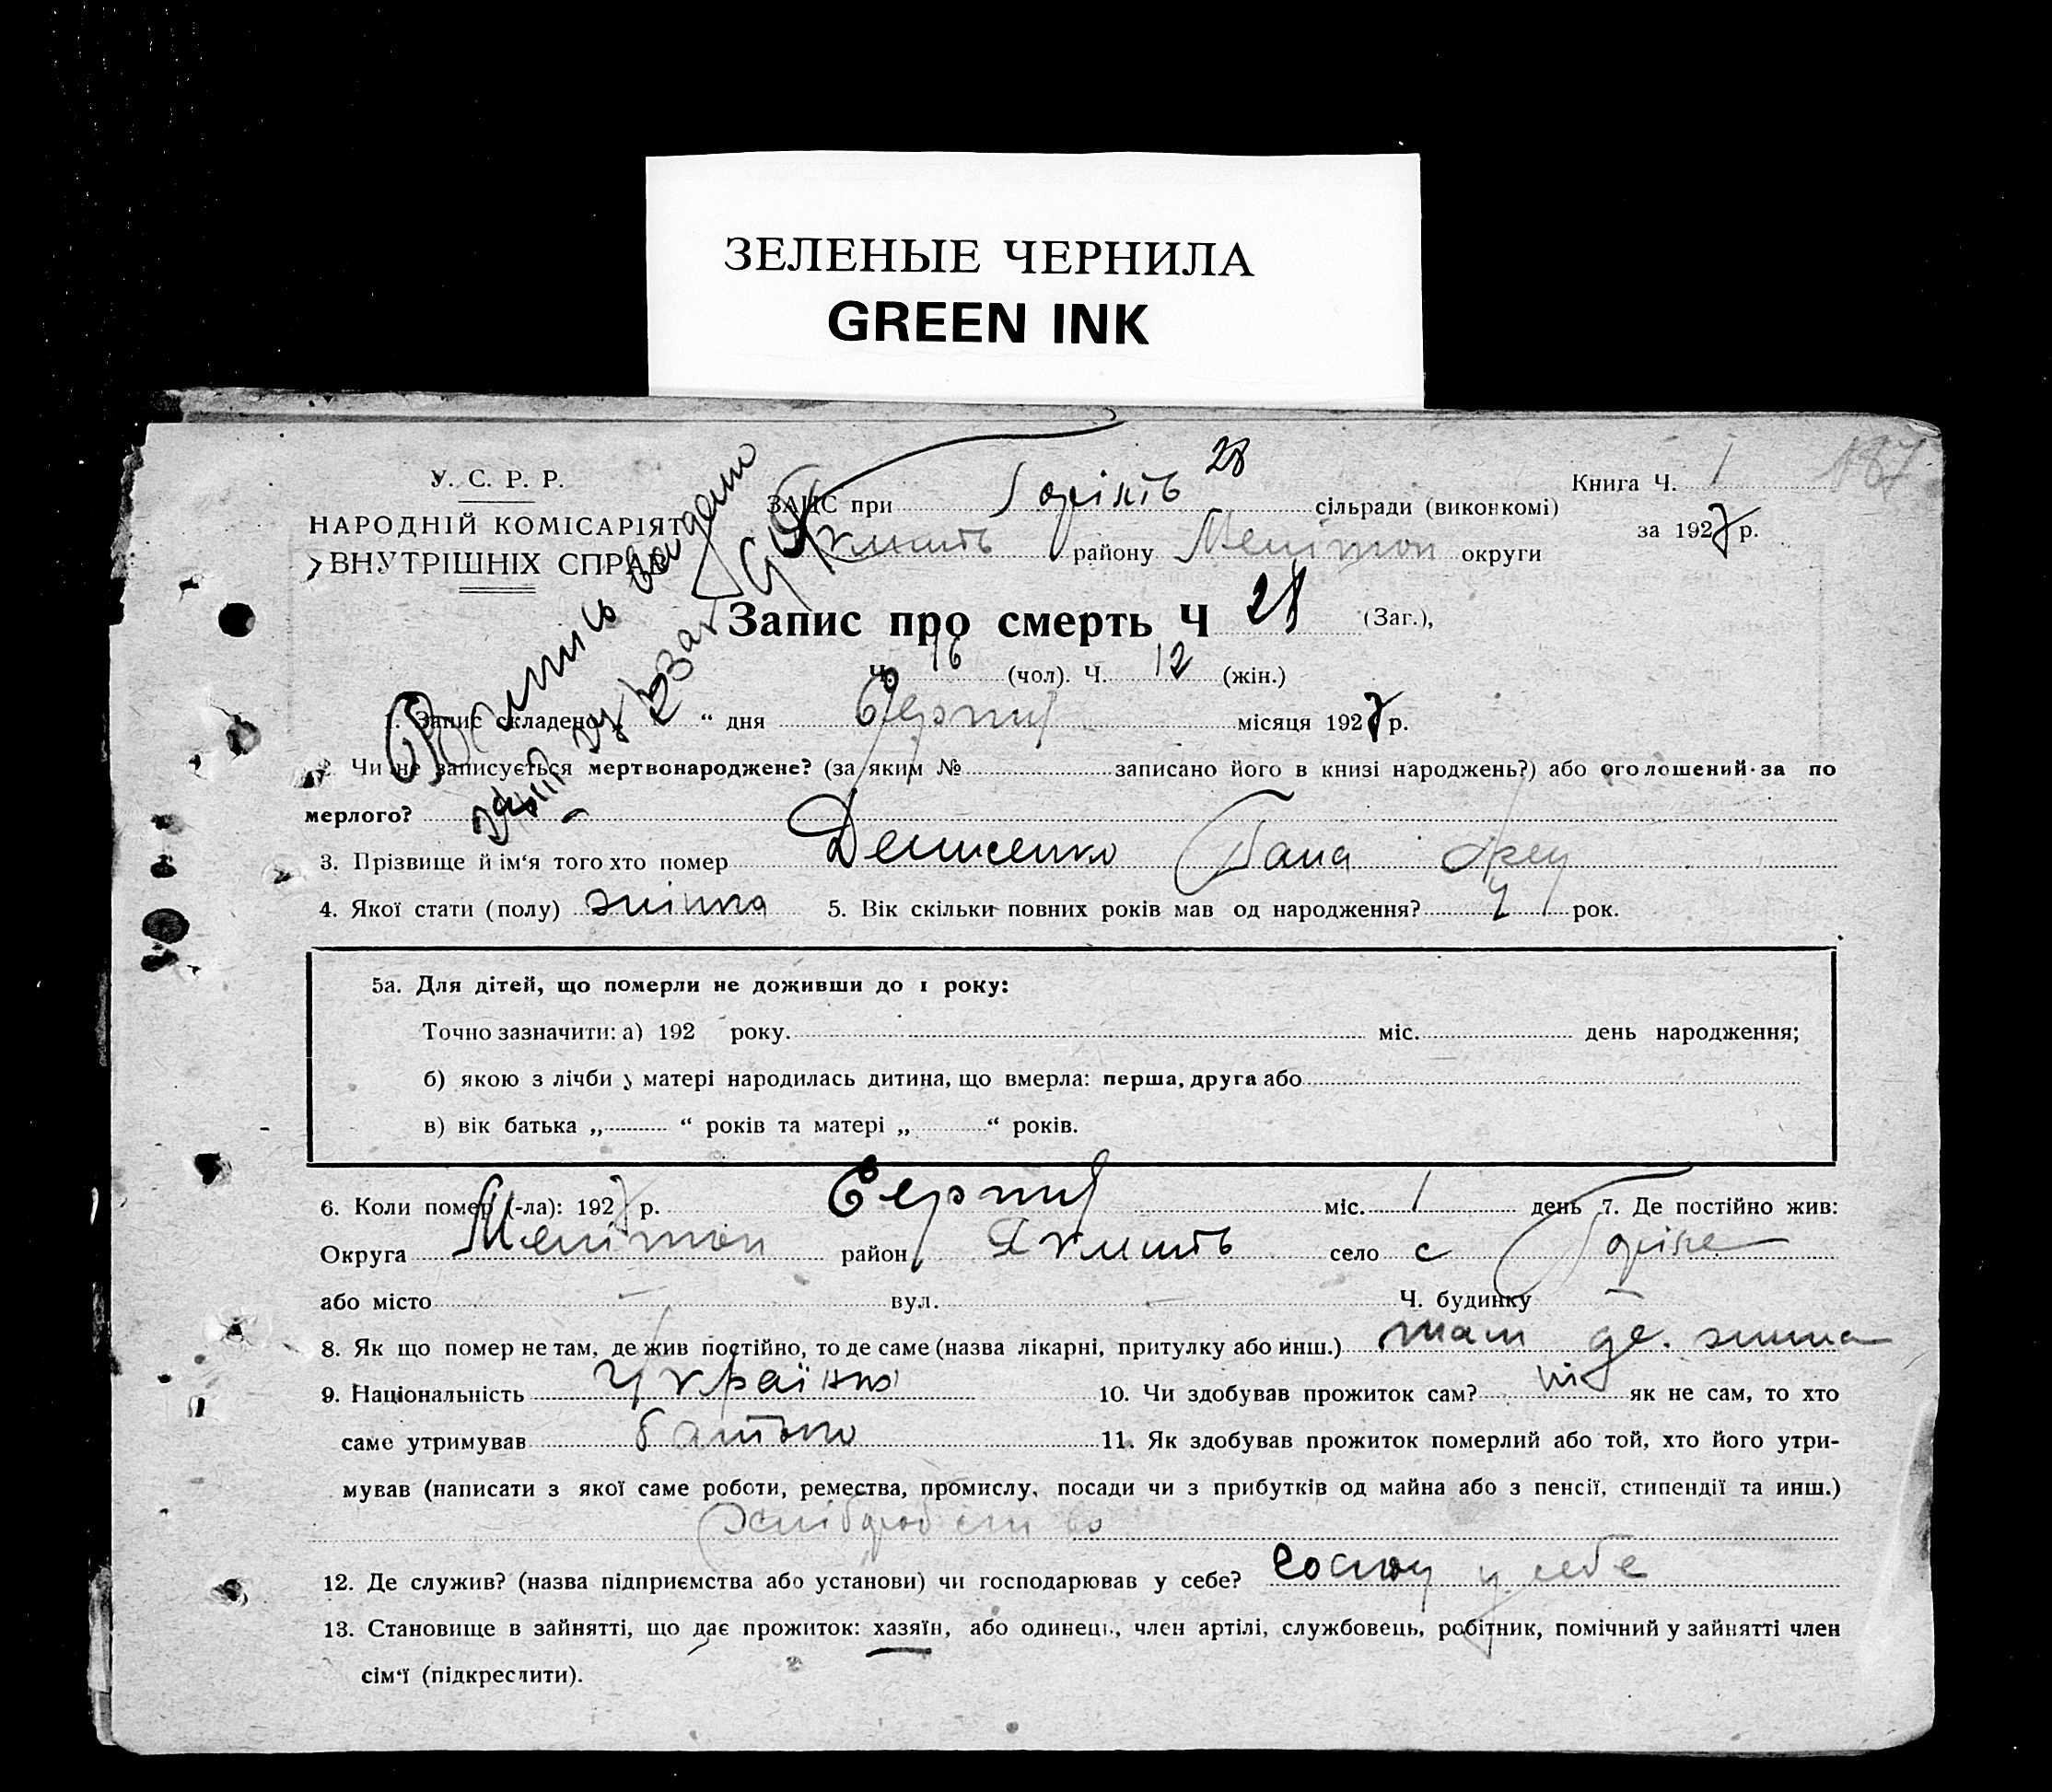 ЗЕЛЕНЫЕ ЧЕРНИЛА
GREEN INK
187
У. С. Р. Р.
НАРОДНІЙ КОМІСАРІЯТ
ВНУТРІШНІХ СПРАВ
28
ЗАГС при сільради (виконкомі)
району округи
Книга Ч. 1
за 1927 р.
Запис про смерть Ч 28 (Заг.),
Ч. 16 (чол). Ч. 12 (жін.)
1. Запис складено „ 2 “ дня Серпня місяця 1927 р.
2. Чи не записується мертвонароджене? (за яким № записано його в книзі народжень?) або оголошений за по
мерлого?
3. Прізвище й ім‘я того хто помер Денисенко
4. Якої стати (полу) жіноча 5. Вік скільки повних років мав од народження? 4 рок.
5а. Для дітей, що померли не доживши до 1 року:
Точно зазначити: а) 192 року. міс. день народження;
б) якою з лічби у матері народилась дитина, що вмерла: перша, друга або
в) вік батька „ “ років та матері „ “ років.
6. Коли помер (-ла): 1927 р. Серпня міс. 1 день 7. Де постійно жив:
Округа район село с
або місто — вул. — Ч. будинку —
8. Як що помер не там, де жив постійно, то де саме (назва лікарні, притулку або инш.) там де жила
9. Національність Українка 10. Чи здобував прожиток сам? ні як не сам, то хто
саме утримував батько 11. Як здобував прожиток померлий або той, хто його утри-
мував (написати з якої саме роботи, ремества, промислу, посади чи з прибутків од майна або з пенсії, стипендії та инш.)
хліборобством
12. Де служив? (назва підприємства або установи) чи господарював у себе? у себе
13. Становище в зайнятті, що дає прожиток: хазяїн, або одинець, член артілі, службовець, робітник, помічний у зайнятті член
сім‘ї (підкреслити).